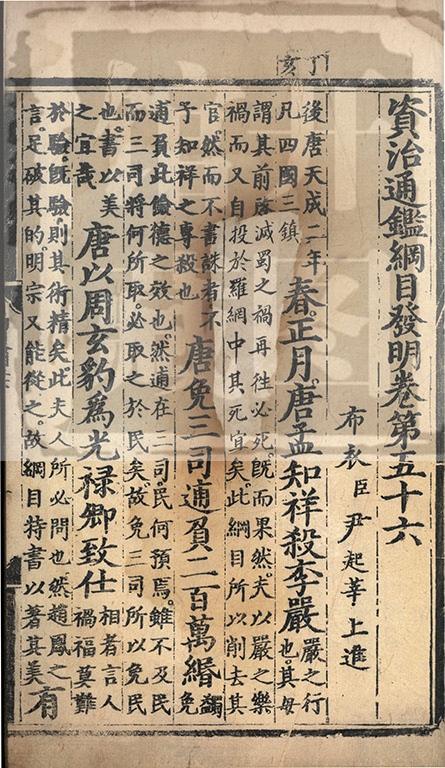 丁亥
資治通鑑綱目發明卷第五十六
布衣臣尹起莘上進
後唐天成二年
凡四國三鎮
春正月唐孟知祥殺李嚴
嚴之行
也其母
謂其前啓滅蜀之禍再往必死既而果然夫以嚴之樂
禍而又自投於羅網中其死宜矣此綱目所以削去其
官然而不書誅者不
予知祥之專殺也
唐免三司逋負二百萬緡
蠲
免
逋負此儉德之效也然逋在三司民何預焉雖不及民
而三司將何所取必取之於民矣故免三司所以免民
也書以美
之宜哉
唐以周玄豹爲光祿卿致仕
相者言人
禍福莫難
於驗既驗則其術精矣此夫人所必問也然趙鳳之
言足破其的明宗又能從之故綱目特書以著其美
有